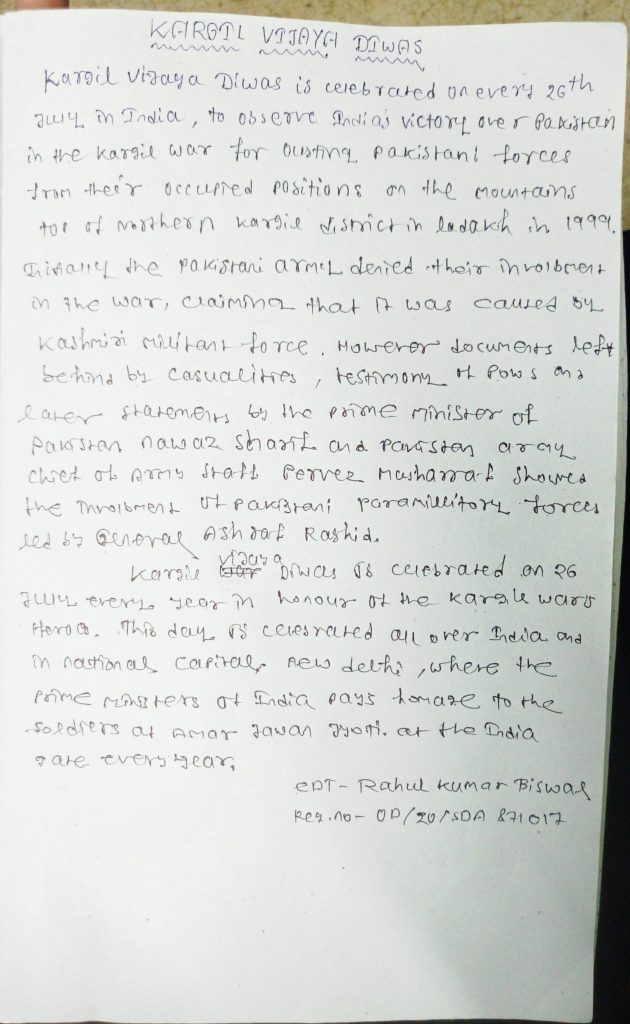 KARGIL VIJAYA DIWAS
Kargil Vijaya Diwas is celebrated on every 26th
July in India, to observe India's victory over Pakistan
in the Kargil war for ousting Pakistani forces
from their occupied positions on the mountains
top of northern Kargil district in ladakh in 1999.
Initially the pakistani army denied their involbment
in the war, claiming that it was caused by
Kashmiri militant force. However documents left
behind by casualities, testimony of Pows and
later statements by the prime minister of
Pakistan nawaz sharif and Pakistan army
chief of Army staff Pervez Musharraf showed
the involbment of Pakistani paramillitory forces
led by General Ashraf Rashid.
Kargil Vijaya Diwas is celebrated on 26
July every year in honour of the Kargil war's
Heros. This day is celebrated all over India and
in national capital, new delhi, where the
prime ministers of India pays homage to the
soldiers at Amar Jawan Jyoti. at the India
gate every year.
CDT- Rahul Kumar Biswal
Reg.no- OD/20/SDA 871017